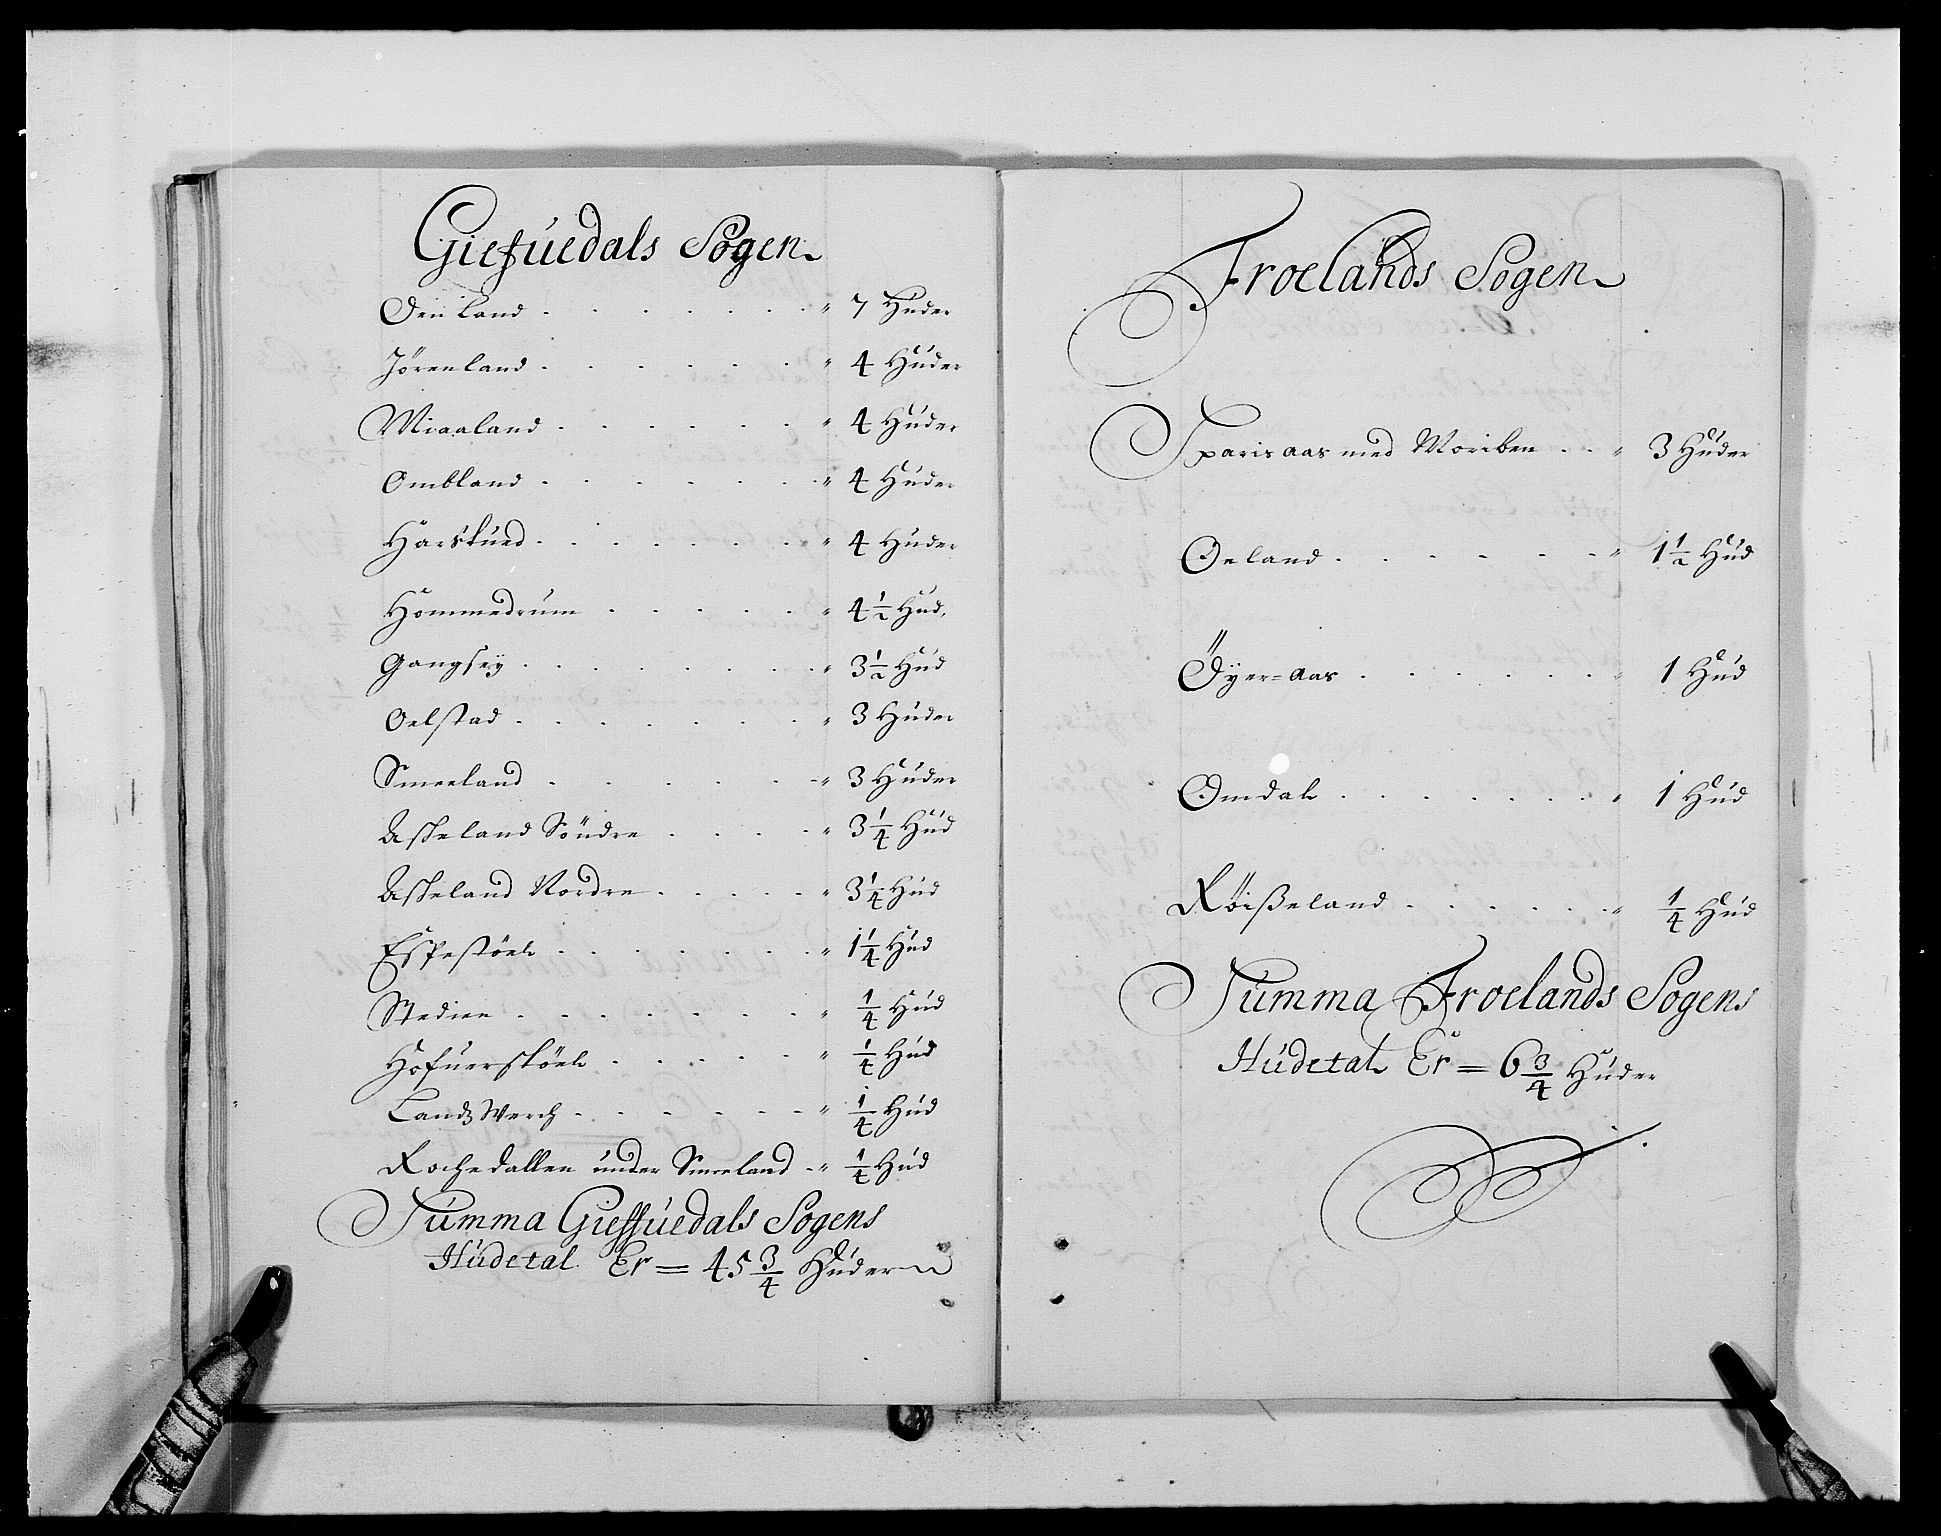 Giefuedals Sogen
Øeiland . . . . . . . " 7 Huder
Jörenland . . . . . . " 4 Huder
Miaaland . . . . . . " 4 Huder
Ombland . . . . . . . " 4 Huder
Harskued . . . . . . . " 4 Huder
Hommedrum . . . . . " 4 1/2 Hud.
Gangsey . . . . . . . . " 3 1/2 Hud
Oelstad . . . . . . . " 3 Huder
Smeeland . . . . . . " 3 Huder
Askeland Söndre . . . . " 3 1/4 Hud
Askeland Nordre . . . . . " 3 1/4 Hud
Espestöel . . . . . . . " 1 1/4 Hud
Stedien . . . . . . . " 1/4 Hud
Hofuerstöel . . . . . " 1/4 Hud
Landz Werch . . . . . . " 1/4 Hud
Rochedallen under Smeeland . " 1/4 Hud
Summa Gieffuedals Sogens
Hudetal Er = 45 3/4 Huder
Froelands Sogen
Sparisaas med Moriben . . " 3 Huder
Oeland . . . . . . . " 1 1/2 Hud
Öyer=aas . . . . . . " 1 Hud
Omdal . . . . . . . " 1 Hud
Röißeland . . . . . . " 1/4 Hud
Summa Froelands Sogens
Hudetal Er = 6 3/4 Huder